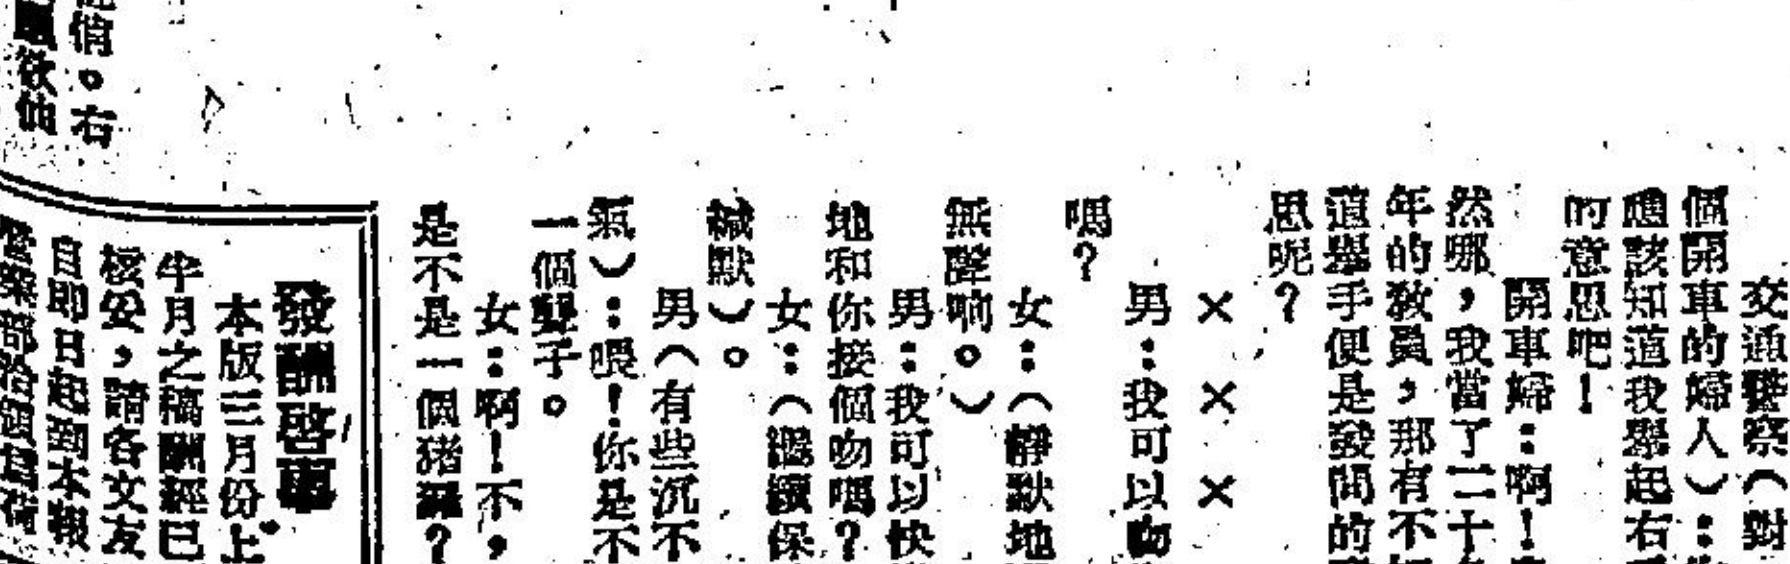 交通警察（對
個開車的婦人）：
應該知道我舉起右
的意思吧！
開車婦：啊！
然哪，我當了二十
年的教員，那有不
道舉手便是發問的
思呢？
×××
男：我可以吻
嗎？
女：（靜默地
無聲响。）
男：我可以快
地和你接個吻嗎？
女：（繼續保
緘默）。
男（有些沉不
氣）：喂！你是不
一個聾子。
女：啊！不，
是不是一個猪玀？
發酬啓事
本版三月份上
半月之稿酬經已
核妥，請各文友
自即日起到本報
倩。右
欲